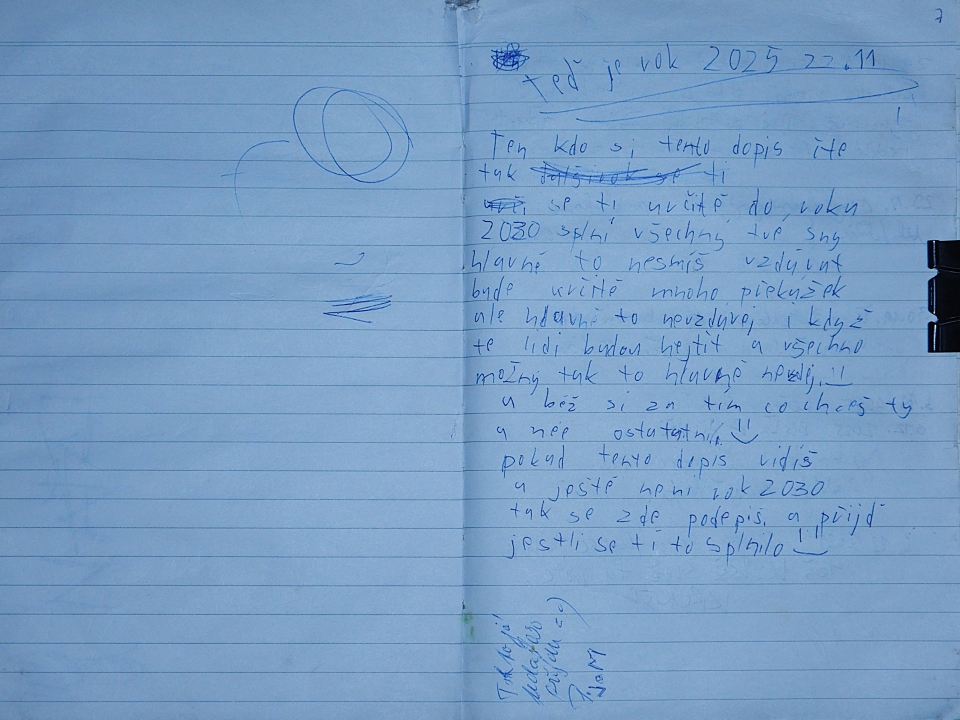 7
teď je rok 2025 22.11
Ten kdo si tento dopis čte
tak ti
se ti určitě do roku
2030 splní všechny tvé sny
hlavně to nesmíš vzdávat
bude určitě mnoho překážek
ale hlavně to nevzdávej i když
tě lidi budou hejtit a všechno
možný tak to hlavně nevzdej
a běž si za tím co chceš ty
a née ostatatní,
pokud tento dopis vidíš
a ještě není rok 2030
tak se zde podepiš a přijď
jestli se ti to splnilo
Tak to já
přijdu =)